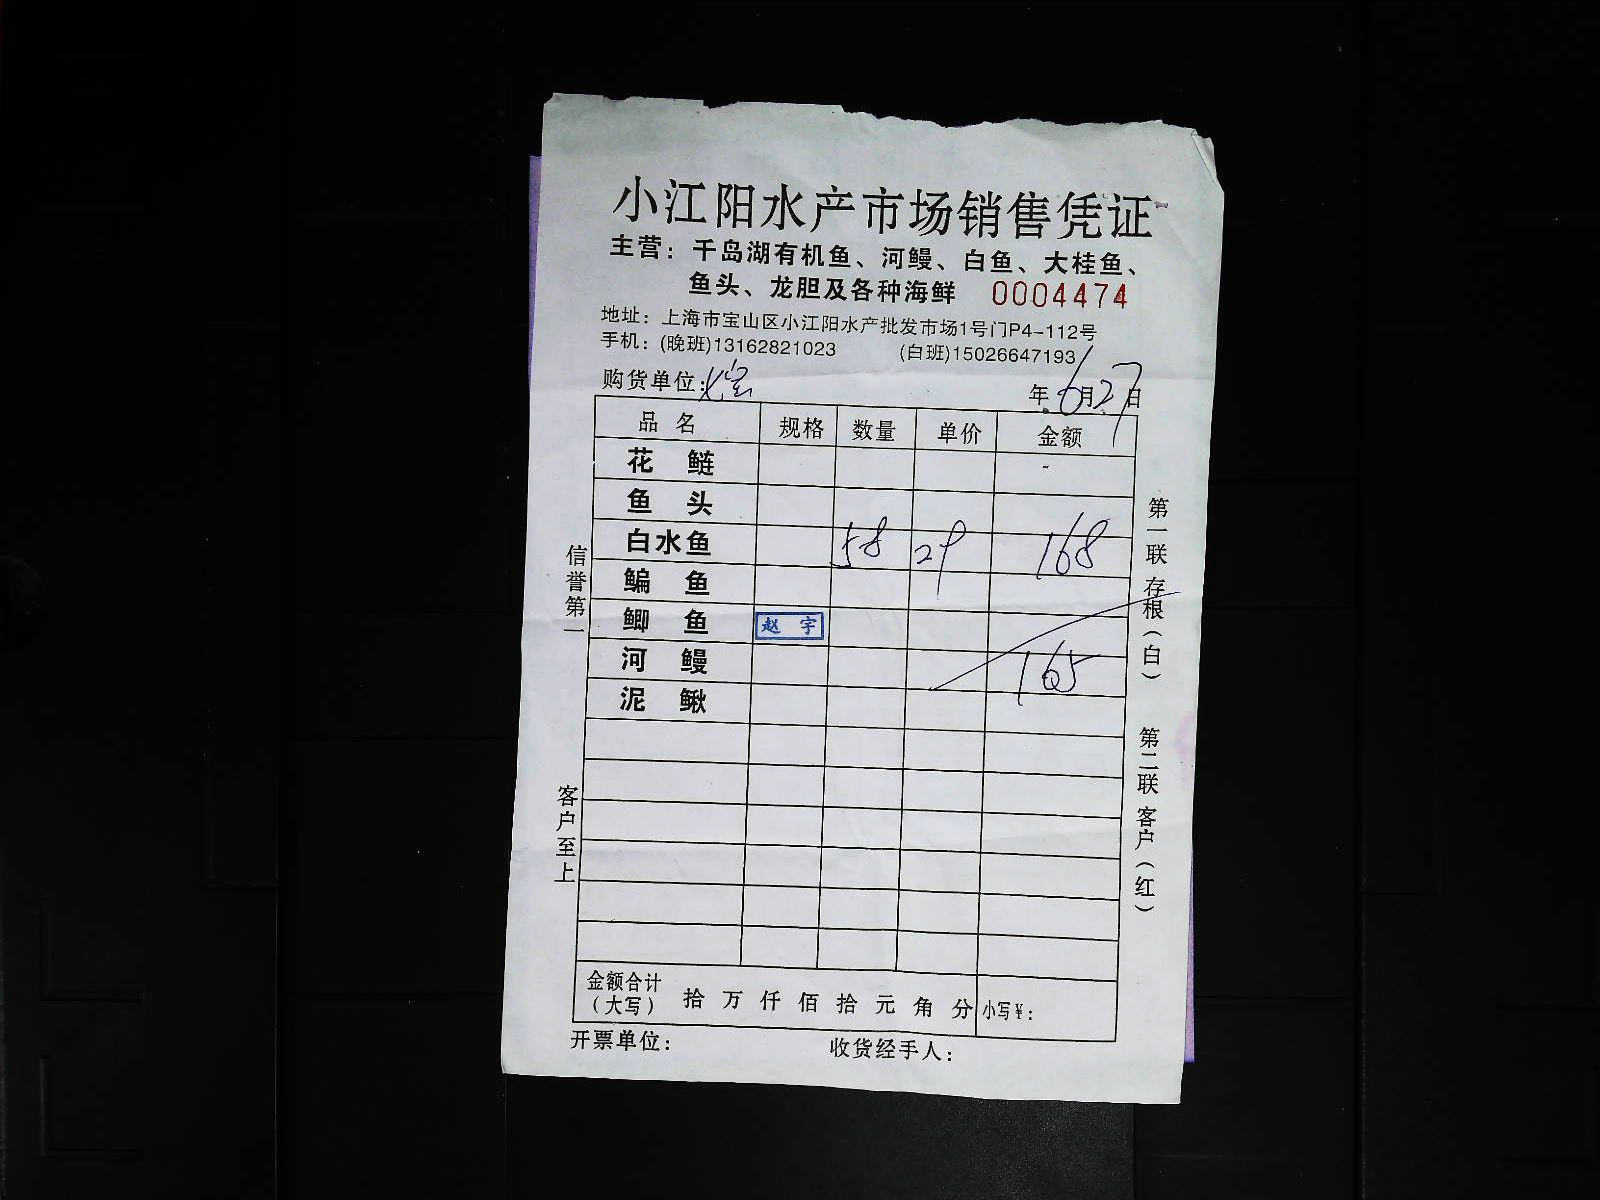 小江阳水产市场销售凭证
主营：千岛湖有机鱼、河鳗、白鱼、大桂鱼、
鱼头、龙胆及各种海鲜 0004474
地址：上海市宝山区小江阳水产批发市场1号门P4-112号
手机：(晚班)13162821023 (白班)15026647193
购货单位： 年6月27日
品名 规格 数量 单价 金额
花鲢
鱼头
白水鱼 58 29 168
鳊鱼
鲫鱼 赵宇
河鳗 165
泥鳅
金额合计
（大写） 拾万仟佰拾元角分 小写¥：
开票单位： 收货经手人：
信誉第一
客户至上
第一联 存根（白）
第二联 客户（红）